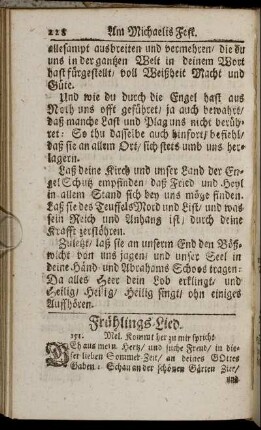 228 Am Michaelis Fest.
allesampt ausbreiten und vermehren/ die du
uns in der gantzen Welt in deinem Wort
hast fürgestellt/ voll Weißheit Macht und
Güte.
Und wie du durch die Engel hast aus
Noth uns offt geführet/ ja auch bewahrt/
daß manche Last und Plag uns nicht berüh-
ret: So thu dasselbe auch hinfort/ befiehl/
daß sie an allem Ort/ sich stets umb uns her-
lagern.
Laß deine Kirch und unser Land der En-
gel Schutz empfinden/ daß Fried und Heyl
in allem Stand sich bey uns möge finden.
Laß sie des Teuffels Mord und List/ und was
sein Reich und Anhang ist/ durch deine
Krafft zerstöhren.
Zuletzt/ laß sie an unserm End den Böß-
wicht von uns jagen/ und unser Seel in
deine Händ und Abrahams Schoos tragen:
Da alles Heer dein Lob erklingt/ und
Heilig/ Heilig/ Heilig singt/ ohn einiges
Auffhören.
Frühlings-Lied.
191. Mel. Kommt her zu mir spricht
Geh aus mein Hertz/ und suche Freud/ in die-
ser lieben Sommer-Zeit/ an deines GOttes
Gaben: Schau an der schönen Gärten Zier/
und